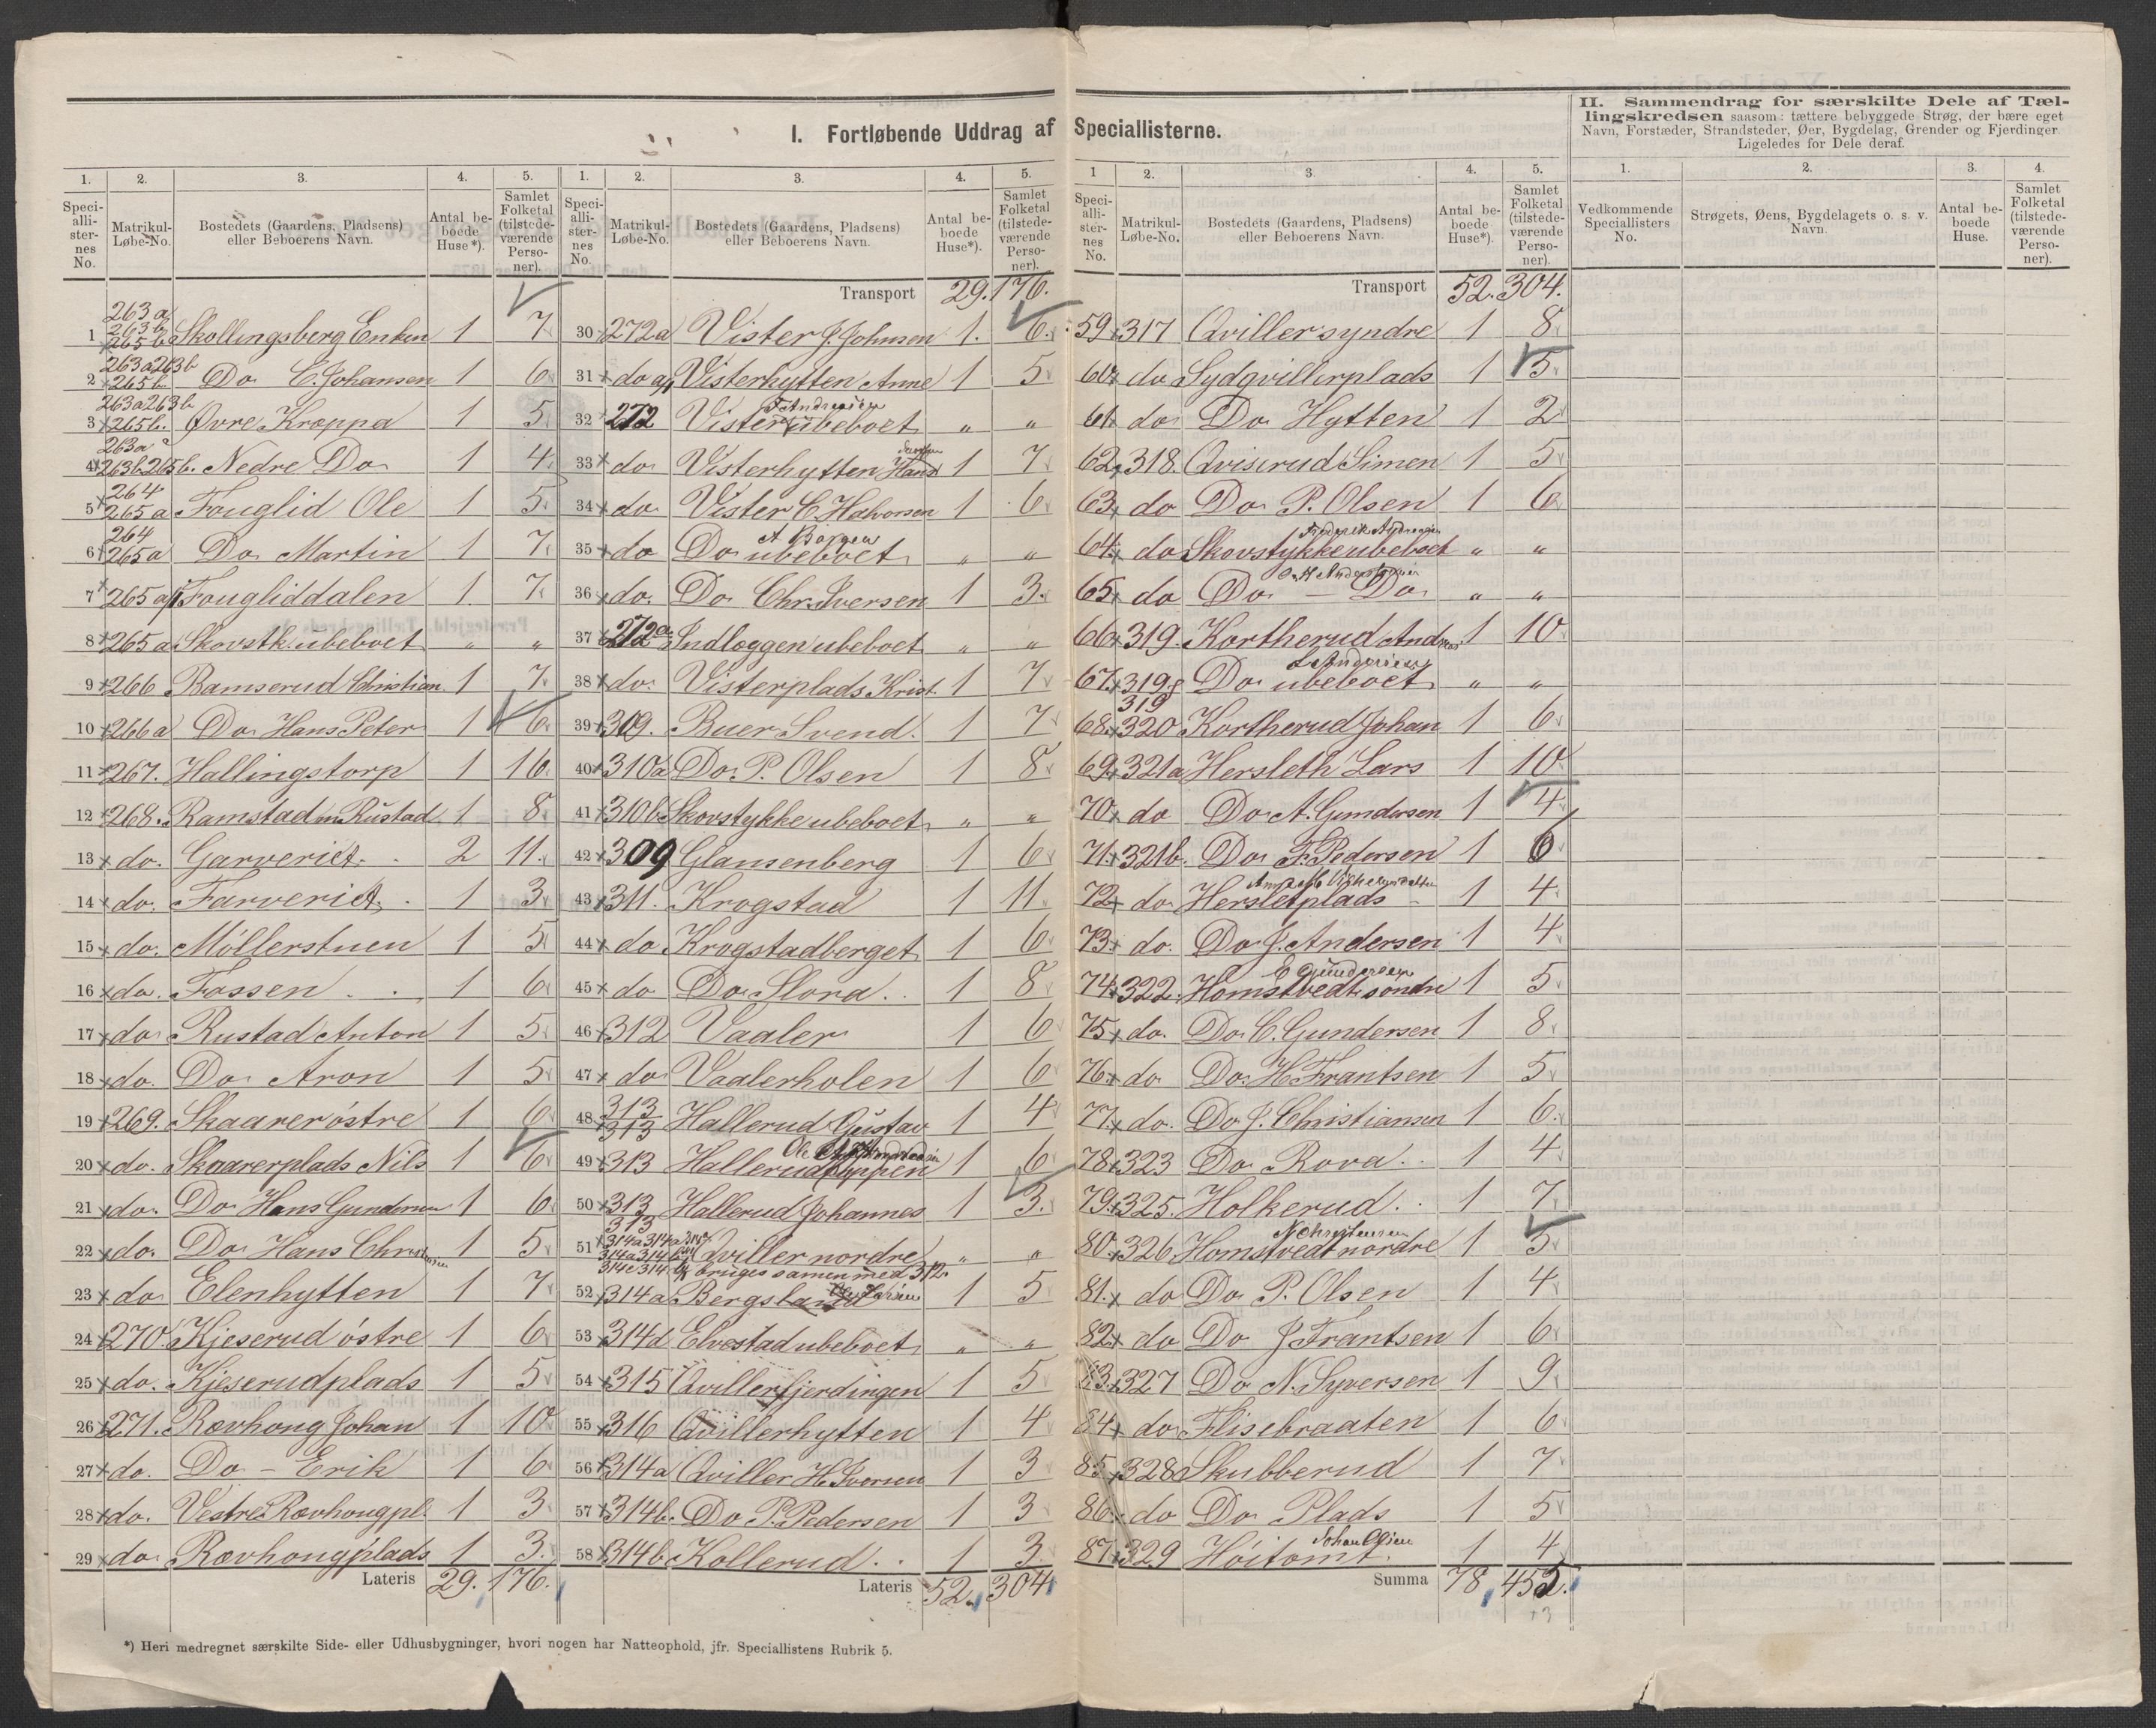 I. Fortløbende Uddrag af Speciallisterne.
1. 2. 3. 4. 5.
Speci-alli-ster-nes No. Matrikul-Løbe-No. Bostedets (Gaardens, Pladsens) eller Beboerens Navn. Antal be-boede Huse*). Samlet Folketal (tilstede-værende Perso-ner).
263a
263b
1 265b Skollingsberg Enken 1 7
263a 263b
2 265b Do C. Johansen 1 6
263a 263b
3 265b. Øvre Kroppa 1 5
263a
4 263b 265b. Nedre Do 1 4
264
5 265a Fouglid Ole 1 5
264
6 265a Do Martin 1 7
7 265a Fougliddalen 1 7
8 265a Skovstk. ubeboet " "
9 266 Ramserud Christian 1 7
10 266a Do Hans Peter 1 6
11 267. Hallingstorp 1 16
12 268. Ramstad m Rustad 1 8
13 do. Garveriet. 2 11
14 do. Farveriet. 1 3
15 do. Möllerstuen 1 5
16 do. Fossen 1 6
17 do Rustad Anton 1 5
18 do. Do Aron 1 5
19 269. Skaarer östre 1 6
20 do. Skaarerplads Nils 1 6
21 do. Do Hans Gundersen 1 6
22 do. Do Hans Christensen 1 5
23 do Elenhytten 1 7
24 270. Kjeserud östre 1 6
25 do. Kjeserudplads 1 5
26 271. Rævhoug Johan 1 10
27 do. Do - Erik 1 6
28 do. Vestre Rævhougpl. 1 3
29 do Rævhougplads 1 3.
Lateris 29. 176.
1. 2. 3. 4. 5.
Speci-alli-ster-nes No. Matrikul-Løbe-No. Bostedets (Gaardens, Pladsens) eller Beboerens Navn. Antal be-boede Huse*). Samlet Folketal (tilstede-værende Perso-ner).
Transport 29. 176.
30 272a Vister J. Johnsen 1. 6.
31 do Visterhytten Anne 1 5
32 272 Vister ubeboet " "
33 do Visterhytten Hans 1 7
34 do Vister C. Halvorsen 1 6
35 do Do ubeboet " "
36 do. Do Chr. Iversen 1 3.
37 272a Indlæggen ubeboet " "
38 do. Visterplads Krist. 1 7
39 309. Buer Svend. 1 7
40 310a Do. P. Olsen 1 8
41 310b Skovstykke ubeboet " "
42 309 Glansenberg 1 6
43 311. Krogstad 1 11
44 do Krogstadberget 1 6
45 do Do Slora 1 8
46 312 Vaaler 1 6
47 do Vaalerholen 1 6
313
48 313 Hallerud Gustav 1 4
49 313 Halleruddyppen 1 6
50 313 Hallerud Johannes 1 3.
51 Qviller nordre " "
bruges sammen med 312.
52 314a Bergsland 1 5
53 314d Elvestad ubeboet " "
54 315 Qvillerfjerdingen 1 5
55 316 Qvillerhytten 1 4
56 314a Qviller H. Iversen 1 3
57 314b. Do P. Pedersen 1 3
58 314b Kollerud 1 3
Lateris 52. 304
1 2. 3. 4. 5.
Speci-alli-ster-nes No. Matrikul-Løbe-No. Bostedets (Gaardens, Pladsens) eller Beboerens Navn. Antal be-boede Huse*). Samlet Folketal (tilstede-værende Perso-ner).
Transport 52. 304.
59 317 Qviller syndre 1 8
60 do Sydqvillerplads 1 5
61 do Do Hytten 1 2
62 318. Qviserud Simen 1 5
63 do Do P. Olsen 1 6
64 do Skovstykke ubeboet " "
65 do Do - Do " "
66 319. Kortherud Andreas 1 10
67 319 Do ubeboet " "
319
68 320 Kortherud Johan 1 6
69 321a Hersleth Lars 1 10
70 do Do A. Gundersen 1 4
71. 321b. Do F. Pedersen 1 6
72 do Hersletplads 1 4
73 do. Do J. Andersen 1 4
E Gundersen
74 322. Homstvedt söndre 1 5
75 do. Do C. Gundersen 1 8
76 do Do. H. Frantsen 1 5
77 do. Do J. Christiansen 1 6.
78 323 Do Rova 1 4
79 325. Holkerud 1 7
N Christensen
80 326 Homstvedt nordre 1 5
81. do Do P. Olsen 1 4
82 do Do J Frantsen 1 6
83 327 Do N. Syversen 1 9
84 do Flisebraaten 1 6
85 328 Skubberud 1 7
86 do Do Plads 1 5
Johan Olsen
87 329 Höitomt 1 4
Summa 78 455.
II. Sammendrag for særskilte Dele af Tæl-
lingskredsen saasom: tættere bebyggede Strøg, der bære eget
Navn, Forstæder, Strandsteder, Øer, Bygdelag, Grender og Fjerdinger.
Ligeledes for Dele deraf.
1. 2. 3. 4.
Vedkommende Speciallisters No. Strøgets, Øens, Bygdelagets o. s. v. Navn. Antal be-boede Huse. Samlet Folketal (tilstede-værende Perso-ner).
*) Heri medregnet særskilte Side- eller Udhusbygninger, hvori nogen har Natteophold, jfr. Speciallistens Rubrik 5.